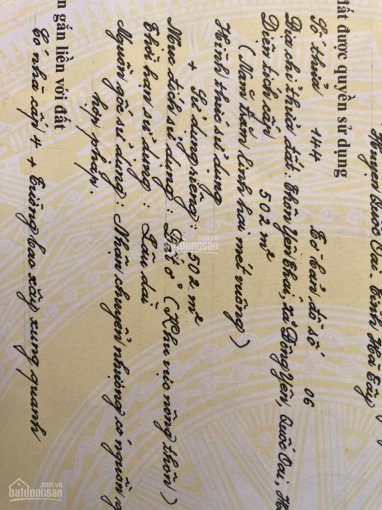 Huyện Quốc Oai Tỉnh Hà Tây
đất được quyền sử dụng
Số thửa 144 Tờ bản đồ số 06
Địa chỉ thửa đất: Thôn Yên Thái, xã Đông Yên, Quốc Oai, H
Diện tích cấp 502 m²
(Năm trăm linh hai mét vuông)
Hình thức sử dụng
+ Sử dụng riêng: 502 m²
Mục đích sử dụng: Đất ở (Khu vực nông thôn)
Thời hạn sử dụng: Lâu dài
Nguồn gốc sử dụng: Nhận chuyển nhượng có nguồn g
hợp pháp.
n gắn liền với đất
Có nhà cấp 4 + Tường bao xây xung quanh
batdongsan
.com.vn
batdongsan
.com.vn